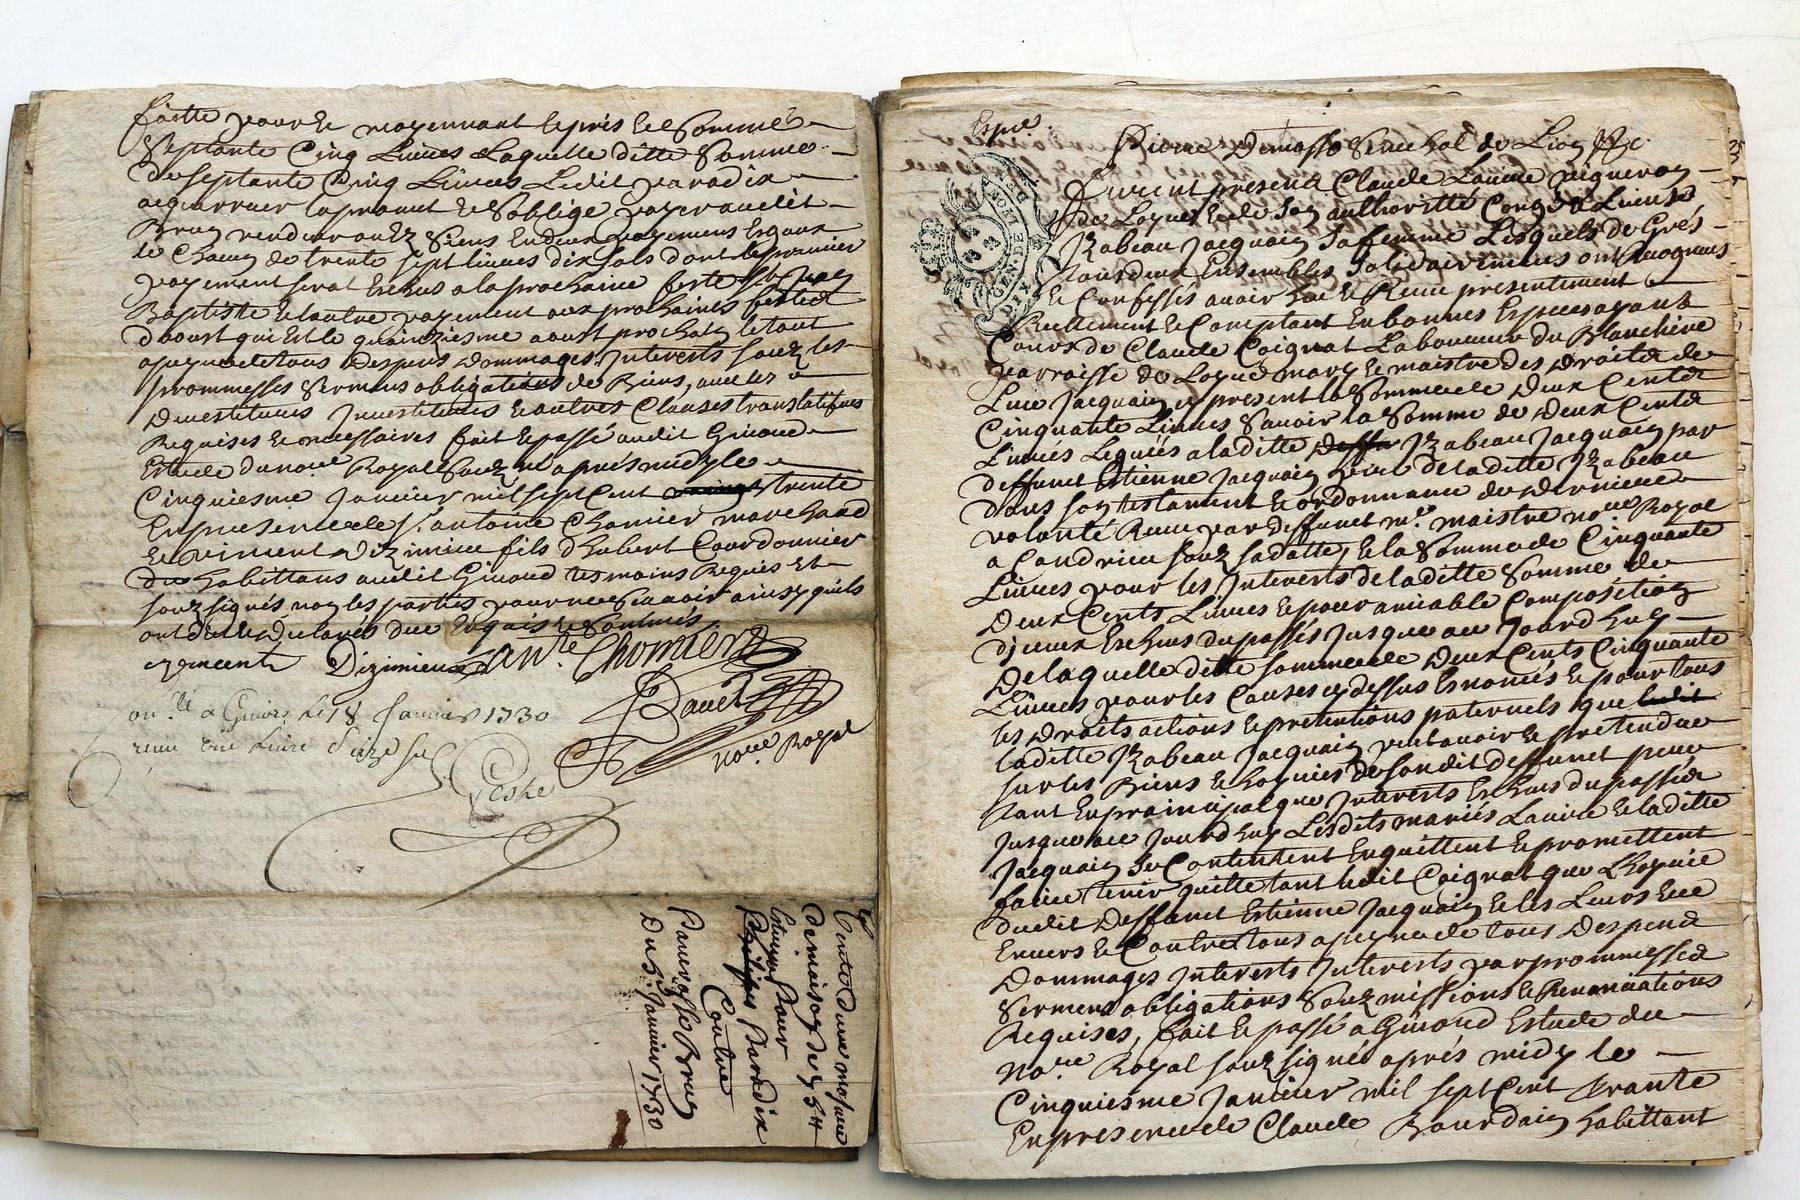 faitte pour et moyennant le prix et somme
Septante Cinq Livres Laquelle ditte Somme
de septante Cinq Livres Ledit paradix
acquerreur promet et S'oblige payer audit
Brun vendeur ou ez Siens En deux payemens Esgaux
de Chacun de trente sept livres dix sols dont le premier
payement serat Escheus a la prochaine feste St Jean
Baptiste Et l'autre payement aux prochaines festes
d'aoust qui Est le quinziesme aoust prochain le tout
a peyne de tous Despens Dommages Interests souz les
prommesses Sermens obligations de Biens, avec les
Devestitures Investitures Et autres Clauses translatifves
Requises Et necessaires fait Et passé audit Givord
Estude du no.re Royal Souz.né apres midy le
Cinquiesme Janvier mil sept Cent trente
En presence de Sr. antoine Chomier marchand
Et vincent Dizimieu fils d'hubert Courdonnier
habittans audit Givord tesmoins Requis Et
souzsignés non les parties pour ne Sçavoir ainsy quils
ont dit Et Declarés due Enquis Et Sommés
vincent Dizimieu ante. Chomier
Davet
no.re Royal
on.lé a Givors le 18 Janvier 1730
receu une livre Seize sols
Vente d'une masure
de maison de 75 lt
Paradix
Contre
Brun
Du 5: Janvier 1730
Expié.
Pierre Demasso Senechal de Lion &c.
DIX DENIERS
GEN DE LYON
Furent presens Claude Lauire vigneron
de Loyre Et de son authoritté Congé & Licence
Izabeau Jacquain sa femme Lesquels de Grés
tous deux Ensembles Solidairement ont Recogneus
Et Confessés avoir heu Et Receu presentement
Reellement Et Comptant En bonnes Especes ayant
Cours de Claude Coignat Laboureur du Blanchère
parroisse de Loyre mary Et maistre des Droits de
Jacquain cy present la Somme de Deux Cents
Cinquante Livres Savoir la Somme de Deux Cents
Livres Leguées a laditte Izabeau Jacquain par
deffunct Estienne Jacquain père de laditte Izabeau
dans son testament Et ordonnance de Derniere
volonté Receu par deffunct me. maistre no.re Royal
a Condrieu souz sa datte, Et la Somme de Cinquante
Livres pour les Interests de laditte Somme de
Deux Cents Livres Et pour amiable Composition
d'jceux Escheus du passés Jusques au Jourd'huy
De laquelle ditte somme de Deux Cents Cinquante
Livres pour les Causes cy dessus Enoncés Et pour tous
les Droits actions Et pretentions paternels que
laditte Izabeau Jacquain peut avoir Et pretendre
sur les Biens Et hoyries de sondit deffunct père
tant En principal que Interests Escheus du passés
Jusques au Jourd'huy Lesdits mariés Lauire Et laditte
Jacquain se Contentent Enquittent Et promettent
faire tenir quitte tant ledit Coignat que L'hoyrie
dudit Deffunct Estienne Jacquain Et les Leurs
Envers Et Contre tous a peyne de tous Despens
Dommages Interests Interests par prommesses
Sermens obligations Souzmissions Et Renonciations
Requises, fait Et passé a Givord Estude du
No.re Royal souzsigné aprés midy le
Cinquiesme Janvier mil sept Cent Trante
En presence de Claude Bourdain habittant